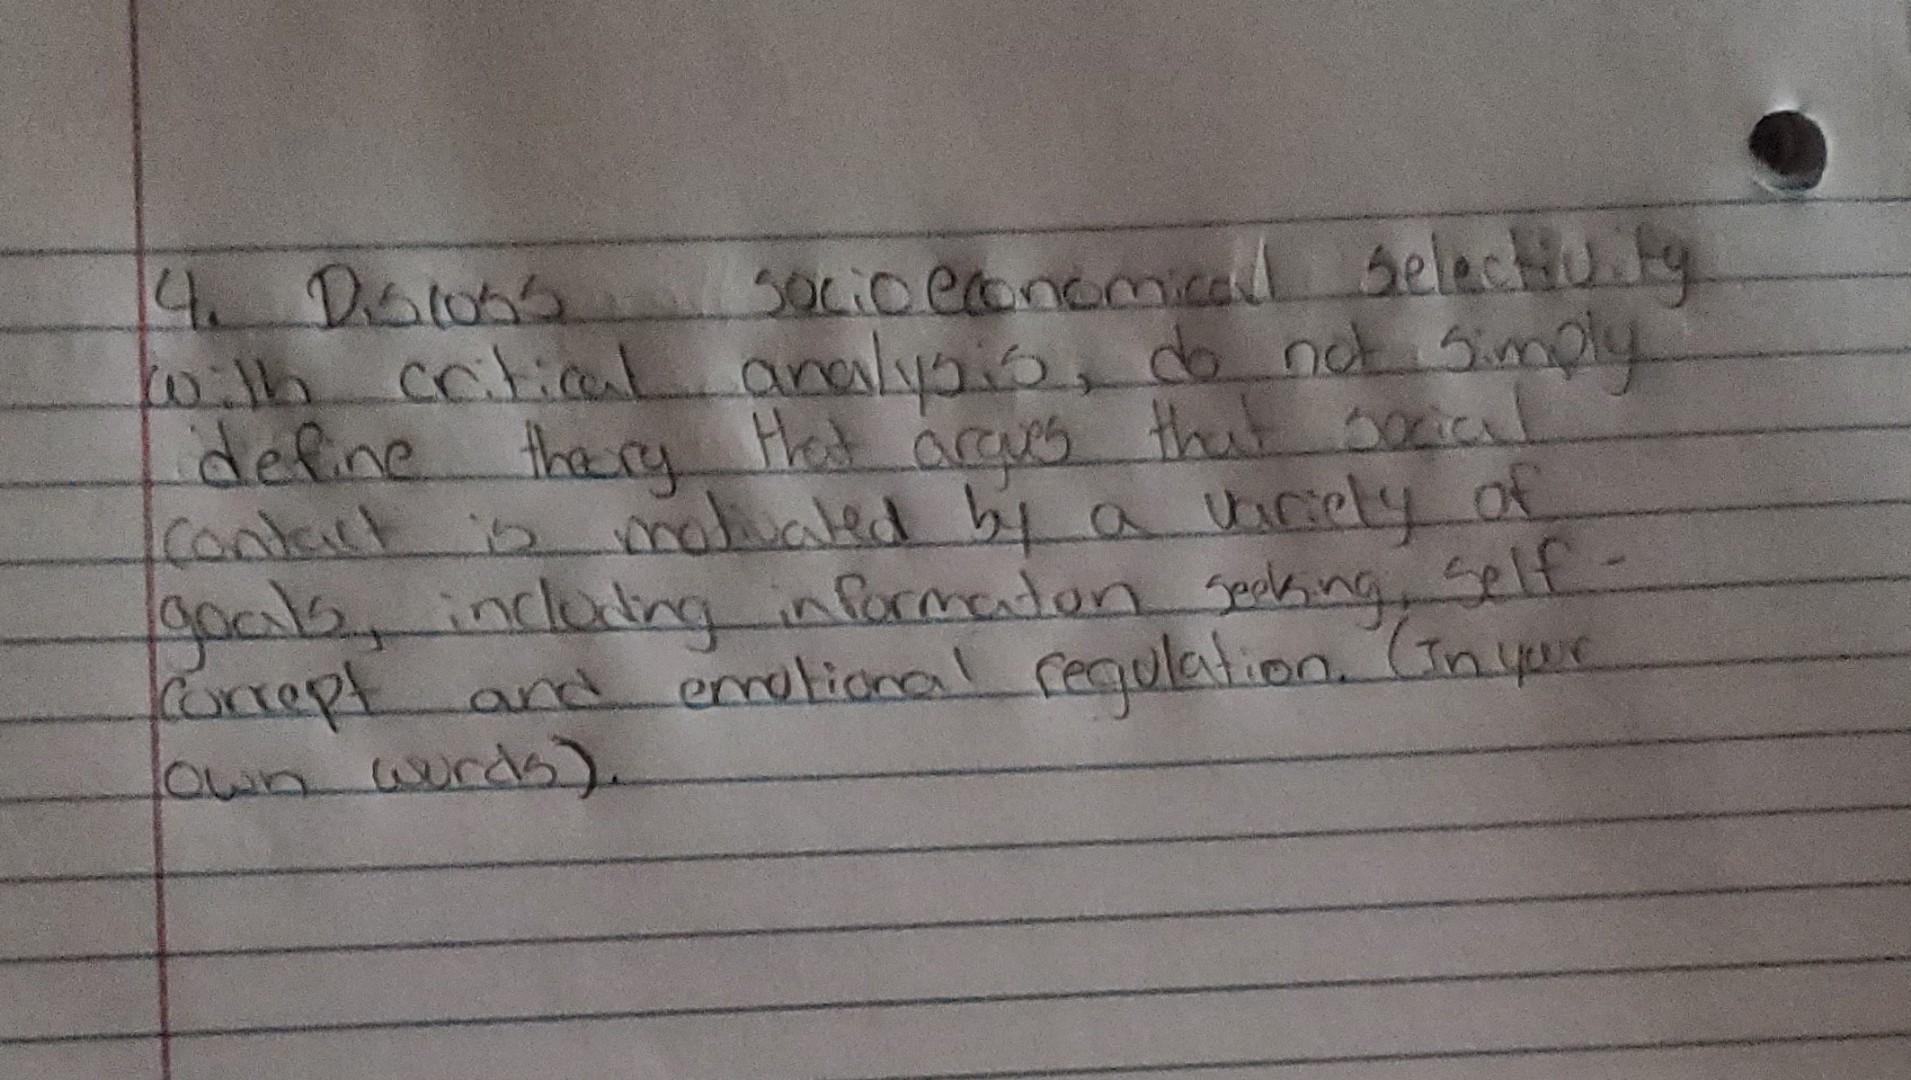 4. Discuss socioeconomical selectivity
with critical analysis, do not simply
define theory that argues that social
contact is motivated by a variety of
goals, including information seeking, self-
concept and emotional regulation. (In your
own words).